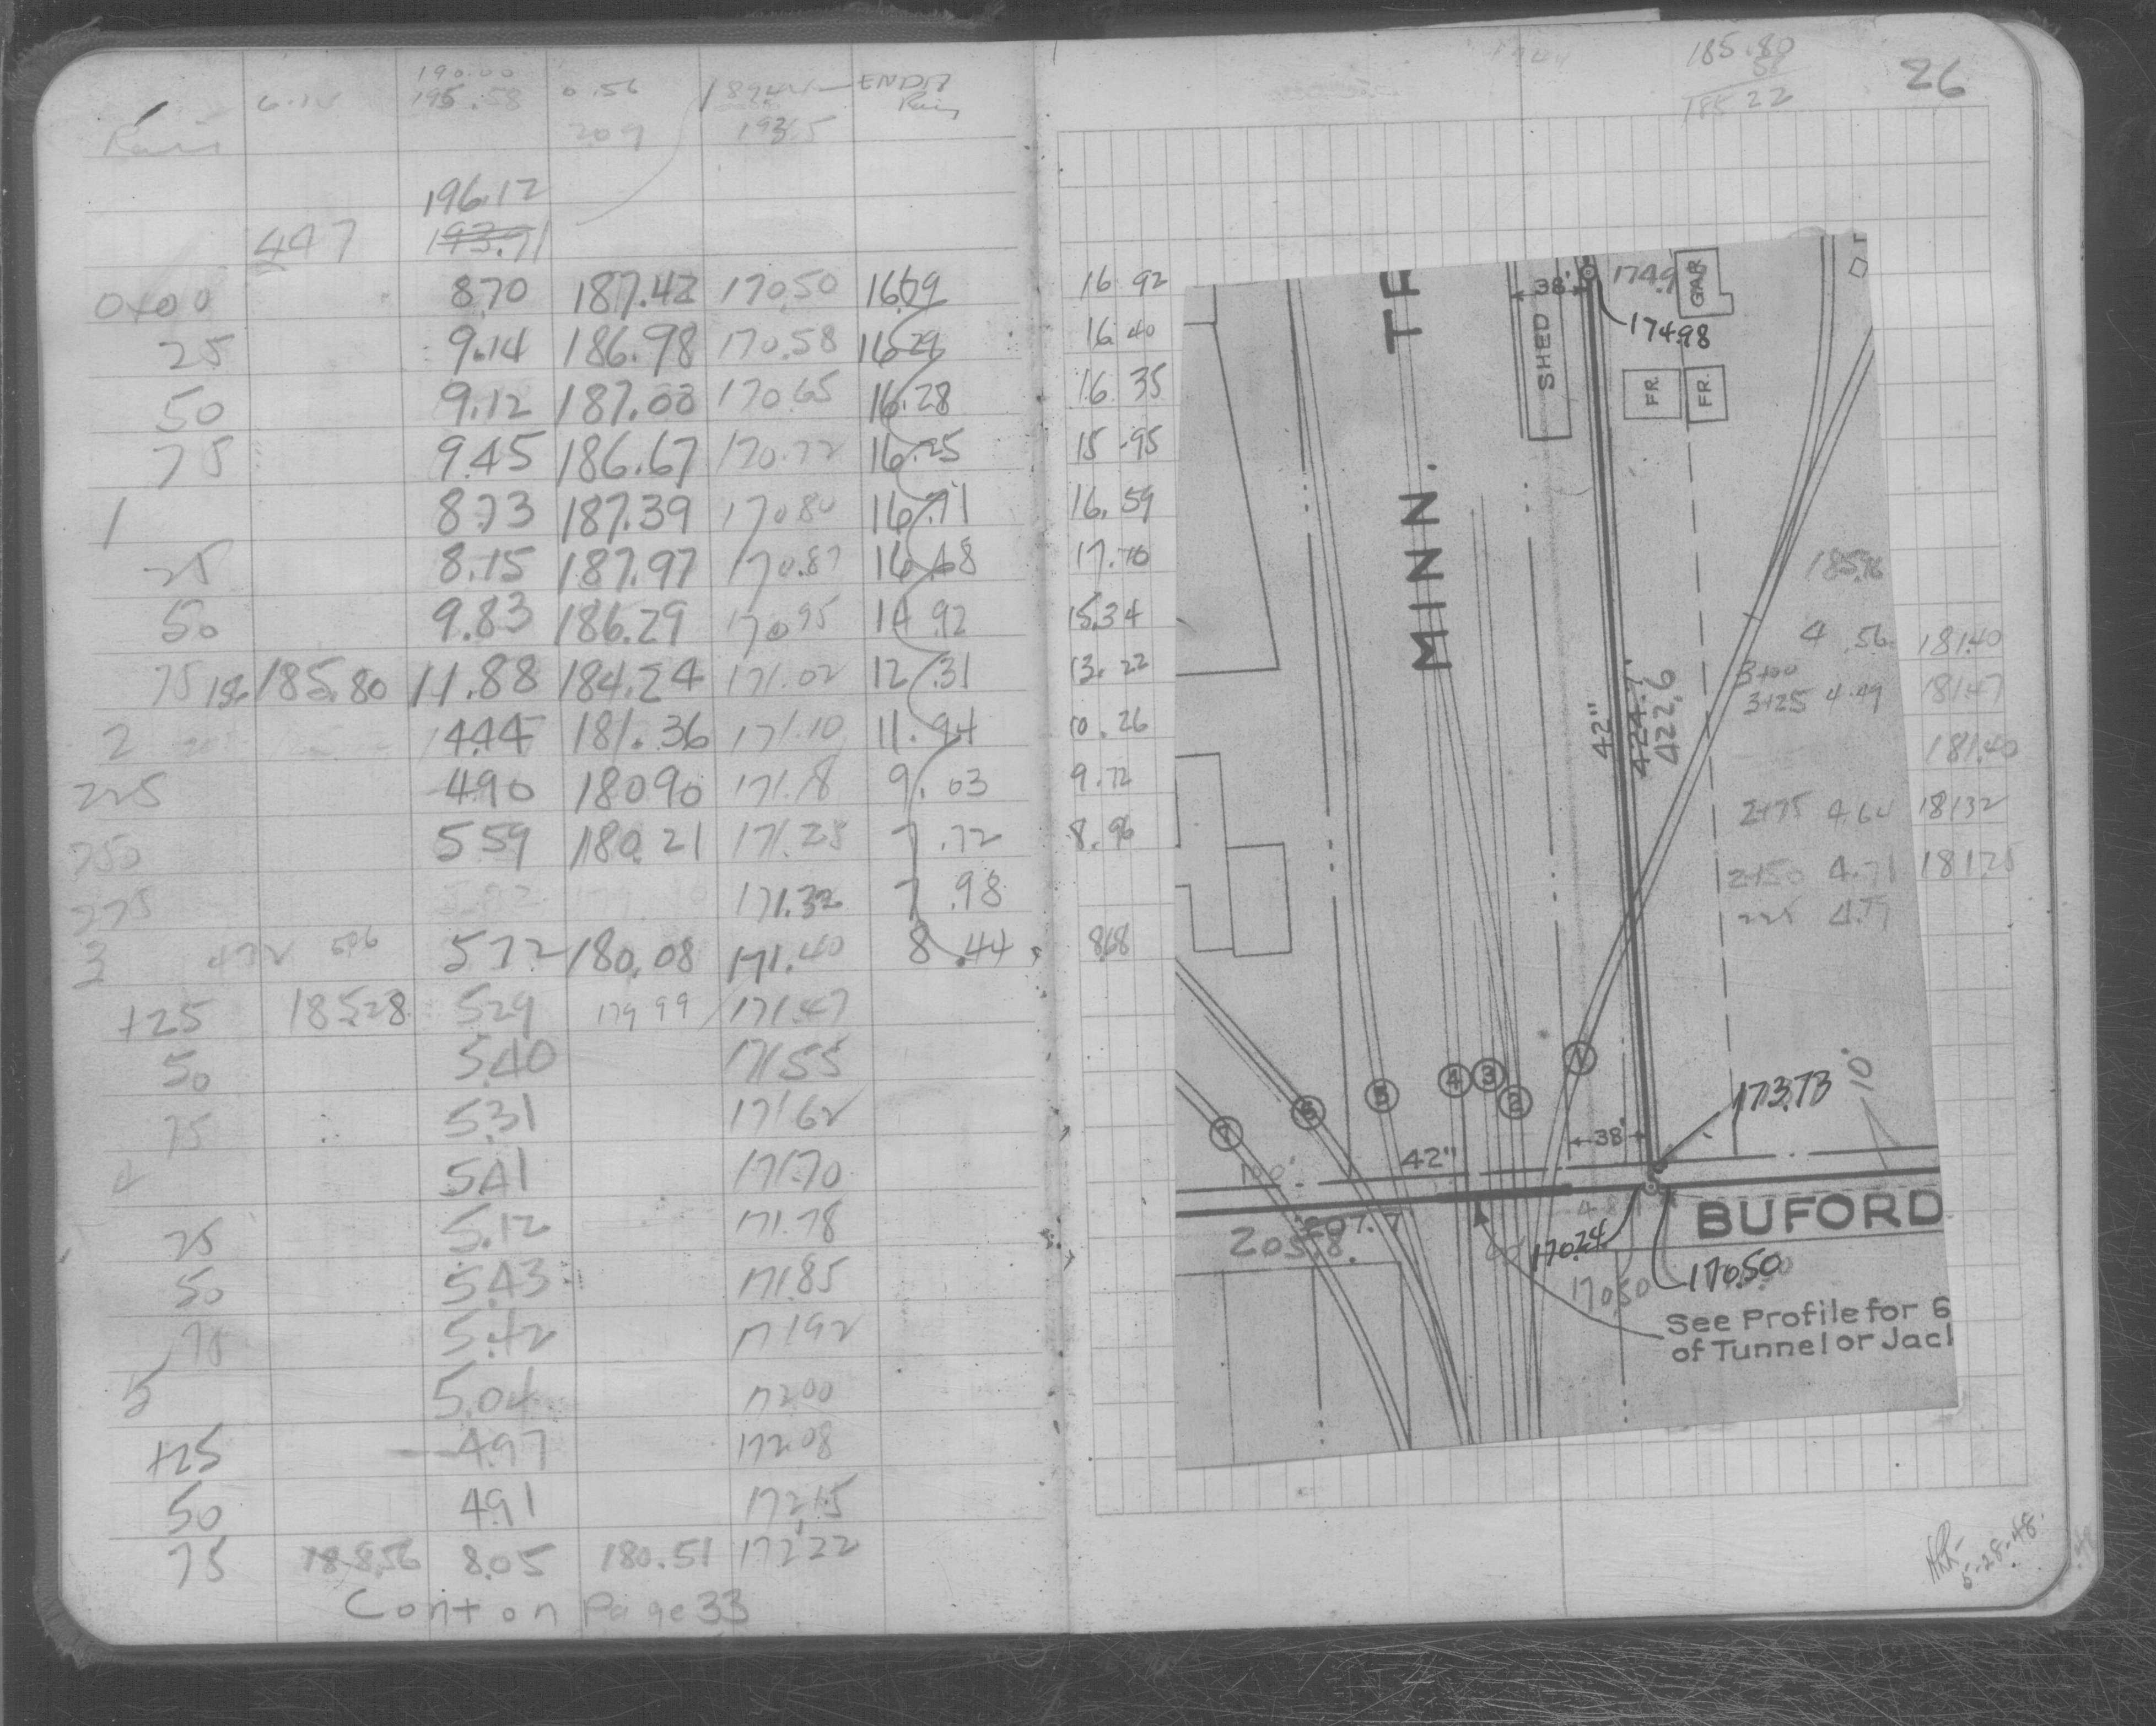 190.00
195.58 0.56 ENDIT
209
196.12
447 193.71
0+00 8.70 187.42 170.50 16.09 16 92
25 9.14 186.98 170.58 16 29 16 40
50 9.12 187.00 170.65 16.28 16 35
75 9.45 186.67 170.72 16.25 15 .95
1 8.73 187.39 170.80 16.71 16. 59
25 8.15 187.97 170.87 16.68 17.10
50 9.83 186.29 170.95 14 92 15.34
75 185.80 11.88 184.24 171.02 12.31 13. 22
2 4.44 181.36 171.10 11.94 10. 26
225 490 180 90 171.18 9.03 9.72
250 559 180.21 171.25 7.72 8.96
275 171.32 7.98
3 5.06 572 180.08 171.40 8.44 8.68
+25 185.28 529 179 99 171.47
50 5.40 171 55
75 5.31 171 62
4 5.41 171.70
25 5.12 171.78
50 5.43 171.85
75 5.42 171 92
5 5.04 172 00
+25 4.97 172 08
50 4.91 172.15
75 188.56 8.05 180.51 172.22
Cont on Page 33
185.80
22
26
TR
MINN.
38'
SHED
174.9
GAR
174.98
FR.
FR.
42"
424.7'
422.6
4 56 181.40
3+00
3+25 4.49 181.47
181.40
2+75 4.64 181 32
2+50 4.71 181.25
225
7 6 5 4 3 2 1
173.73
10'
42"
38'
100'
207.7
205.8.
BUFORD
170.24
170.50
170.50
See Profile for 6
of Tunnel or Jac
5-28-48